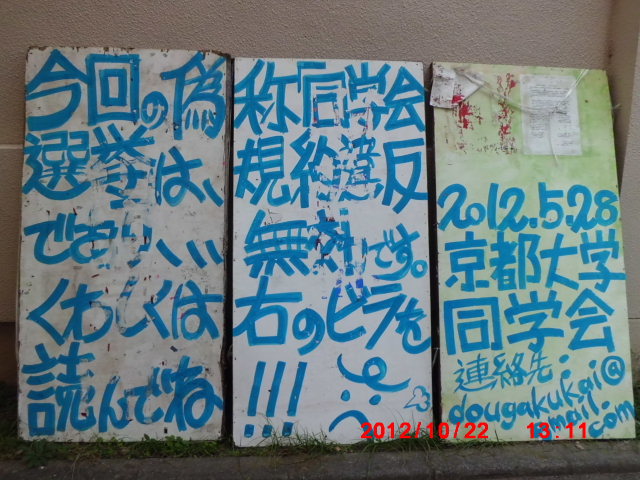 今回の偽称同学会
選挙は、規約違反
であり、、、無効です。
くわしくは右のビラを
読んでね!!!
2012.5.28
京都大学
同学会
連絡先:
dougakukai@
gmail.com
2012/10/22 13:11